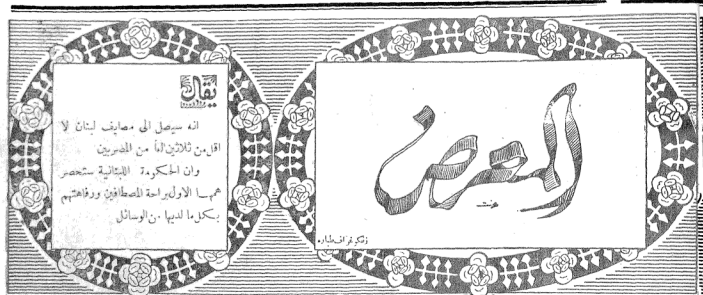 المعرض
زنكوغراف طباره
يقال
انه سيصل الى مصايف لبنان لا
اقل من ثلاثين الفاً من المصريين
وان الحكومة اللبنانية ستحصر
همها الاول براحة المصطافين ورفاهتهم
بكل ما لديها من الوسائل